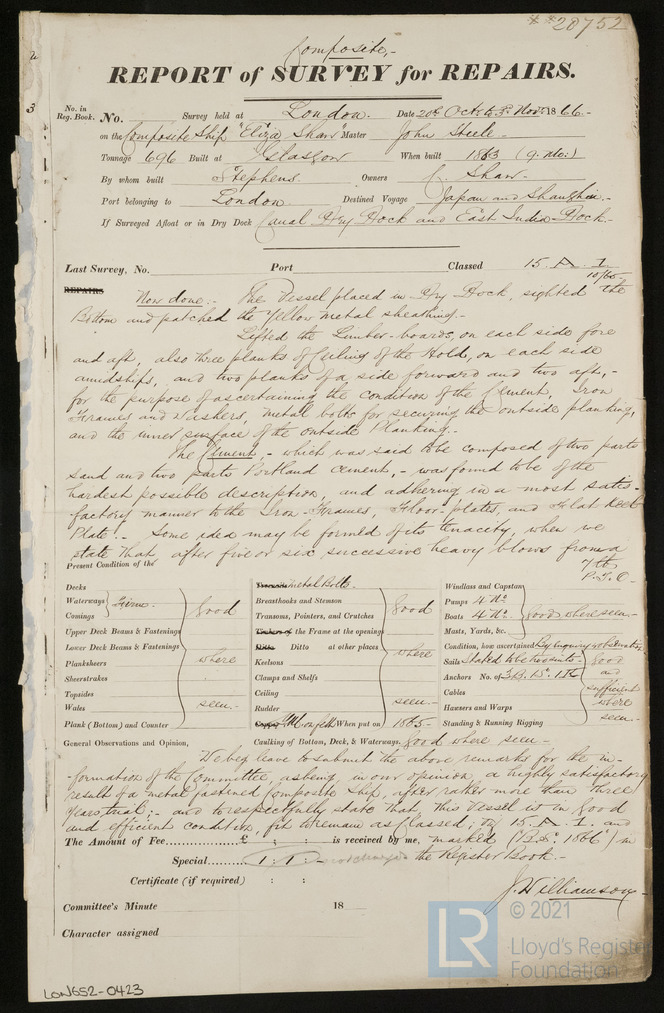 ** 20752
Composite.-
REPORT of SURVEY for REPAIRS.
No. in Reg. Book. No. Survey held at London. Date 20th Octr & 3d Novr 1866-
on the Composite Ship "Eliza Shaw" Master John Steele-
Tonnage 696 Built at Glasgow When built 1863 (9.mo:)
By whom built Stephens Owners Shaw-
Port belonging to London. Destined Voyage Japan and Shanghai-
If Surveyed Afloat or in Dry Dock Canal Dry Dock and East India Dock.-
Last Survey, No. Port Classed 15. A. I.
10/65-
REPAIRS Now done:- The Vessel placed in Dry Dock, sighted the
Bottom and patched the Yellow metal sheathing-
Lifted the Limber-boards, on each side fore
and aft, also three planks of Ceiling of the Hold, on each side
amidships, and two planks of a side forward and two aft,-
for the purpose of ascertaining the condition of the Cement, Iron
Frames and Washers, metal bolts for securing the outside planking,
and the inner surface of the outside Planking.-
The Cement,- which was said to be composed of two parts
sand and two parts Portland cement,- was found to be of the
hardest possible description, and adhering in a most satis-
factory manner to the Iron-Frames, Floor-plates, and Flat Keel
Plate!- Some idea may be formed of its tenacity, when we
state that after five or six successive heavy blows from a
7 lb
P.T.O-
Present Condition of the
Decks
Waterways
Comings
Firm-
Upper Deck Beams & Fastenings
Lower Deck Beams & Fastenings
Planksheers
Sheerstrakes
Topsides
Wales
Plank (Bottom) and Counter
good
where
seen.-
metal Bolts.
Breasthooks and Stemson
Transoms, Pointers, and Crutches
Timbers of the Frame at the openings
Ditto Ditto at other places
Keelsons
Clamps and Shelfs
Ceiling
Rudder
Copper Y.M. on felt When put on 1865-
good
where
seen-
Windlass and Capstan
Pumps 4 No.
Boats 4 No.
Masts, Yards, &c.
good where seen-
Condition, how ascertained By inquiry & observation
Sails Stated to be two suits-
Anchors No. of 3 B. 1 S. 1 K.
Cables
Hawsers and Warps
Standing & Running Rigging
good
and
sufficient
where
seen-
General Observations and Opinion, Caulking of Bottom, Deck, & Waterways. Good where seen-
We beg leave to submit the above remarks for the in-
-formation of the Committee, as being, in our opinion, a highly satisfactory
result of a metal fastened Composite Ship, after rather more than three
years trial;- and to respectfully state that, this Vessel is in good
and efficient condition, fit to remain as Classed; Viz 15. A. I. and
The Amount of Fee........£ : : is received by me, marked ("B.S. 1866") in
Special........ 1. 1. - not charged the Register Book-
Certificate (if required) : :
J. Williamson-
Committee's Minute 18
Character assigned
LR © 2021
Lloyd's Register
Foundation
LON652-0423